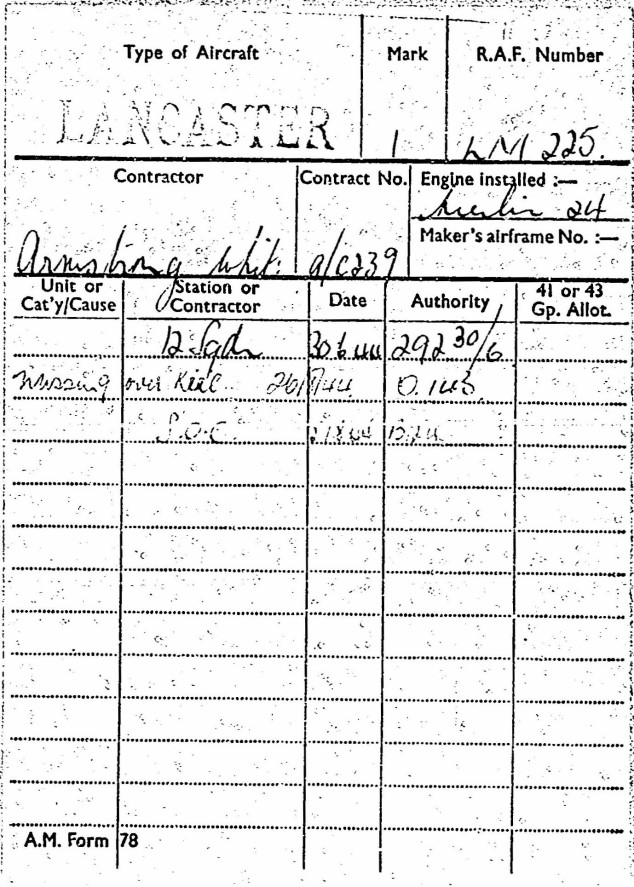 Type of Aircraft Mark R.A.F. Number
LANCASTER 1 LM 225.
Contractor Contract No. Engine installed :—
Merlin 24
Maker's airframe No. :—
Armstrong Whit: a/c239
Unit or Cat'y/Cause Station or Contractor Date Authority 41 or 43 Gp. Allot.
12 Sqdn 30 6 44 292 30/6
Missing over Keil 26 44 0.145
S.O.C.
A.M. Form 78